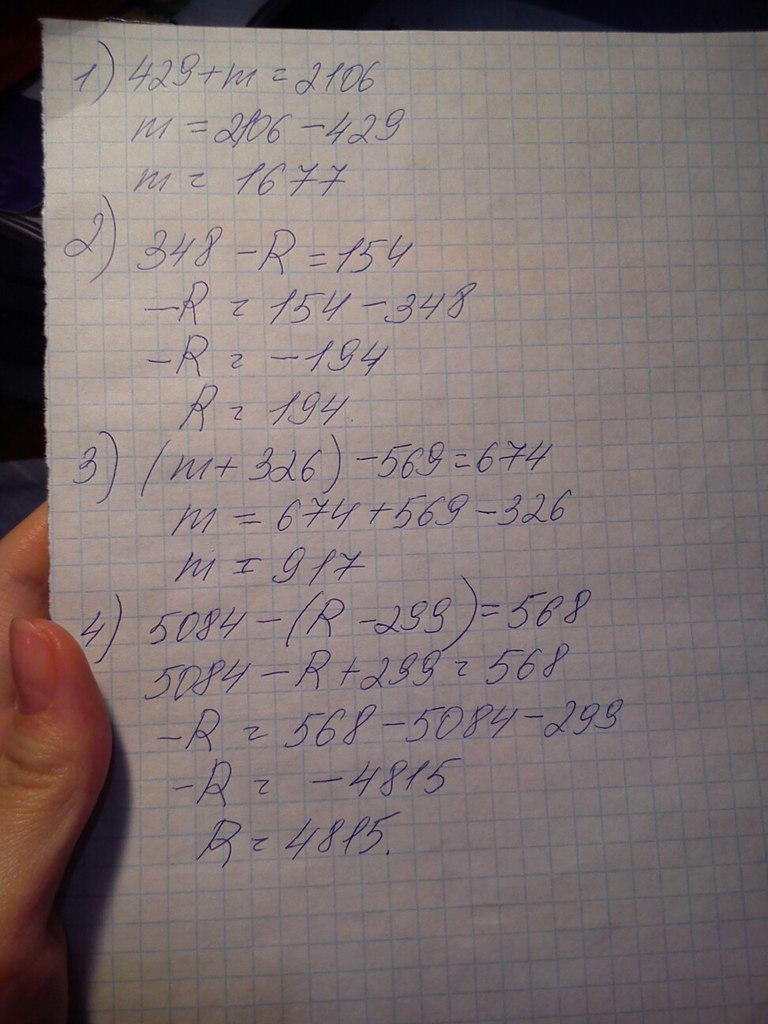 1) 429+m=2106
m=2106-429
m=1677
2) 348-R=154
-R=154-348
-R=-194
R=194.
3) (m+326)-569=674
m=674+569-326
m=917
4) 5084-(R-299)=568
5084-R+299=568
-R=568-5084-299
-R=-4815
R=4815.